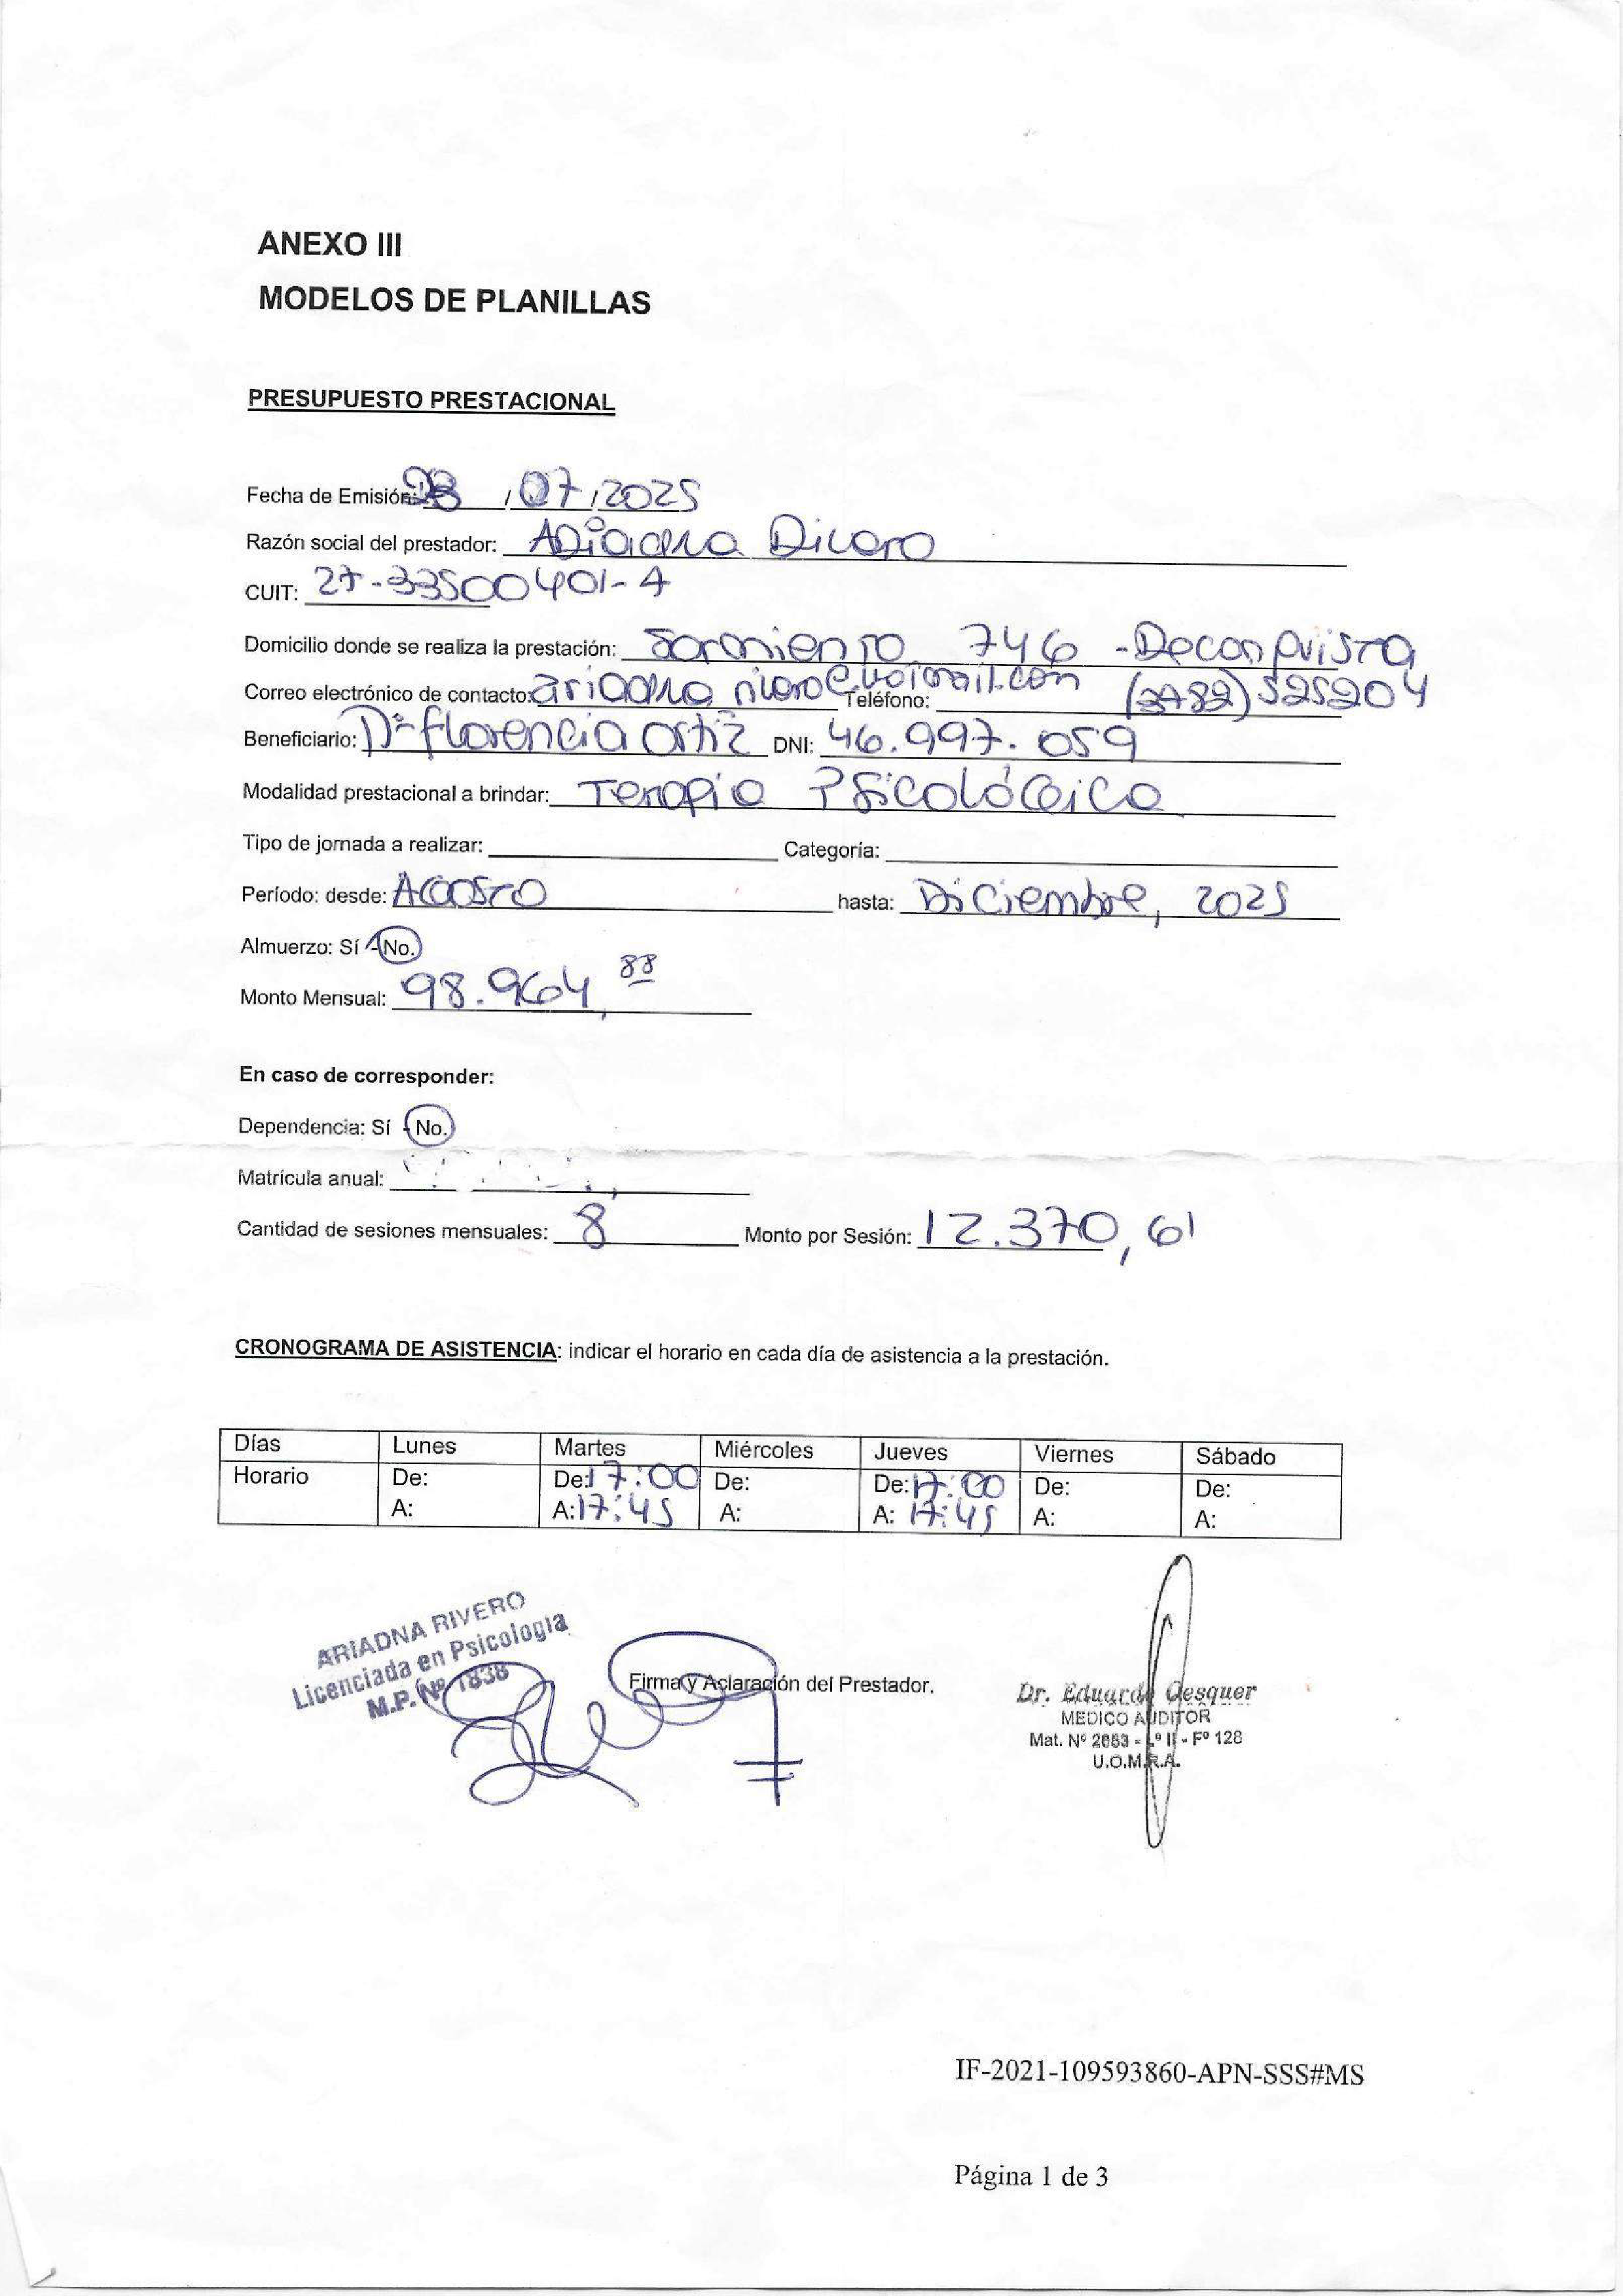 ANEXO III
MODELOS DE PLANILLAS
PRESUPUESTO PRESTACIONAL
Fecha de Emisión: 28 / 07 / 2025
Razón social del prestador: Ariadna Rivero
CUIT: 27-33500401-4
Domicilio donde se realiza la prestación: Sarmiento 746 - Reconquista
Correo electrónico de contacto: ariadna rivero@hotmail.com Teléfono: (3482) 525204
Beneficiario: Mª florencia ortiz DNI: 46.997.059
Modalidad prestacional a brindar: Terapia Psicológica
Tipo de jornada a realizar: Categoría:
Período: desde: Agosto hasta: Diciembre, 2025
Almuerzo: Sí - No.
Monto Mensual: 98.964,88
En caso de corresponder:
Dependencia: Sí - No.
Matrícula anual:
Cantidad de sesiones mensuales: 8 Monto por Sesión: 12.370,61
CRONOGRAMA DE ASISTENCIA: indicar el horario en cada día de asistencia a la prestación.
Días Lunes Martes Miércoles Jueves Viernes Sábado
Horario De: De: 17:00 De: De: 17:00 De: De:
A: A: 17:45 A: A: 17:45 A: A:
ARIADNA RIVERO
Licenciada en Psicología
M.P. Nº 1838
Firma y Aclaración del Prestador.
Dr. Eduardo
MEDICO AUDITOR
Mat. Nº 2663 - Lº II - Fº 128
U.O.M.R.A.
IF-2021-109593860-APN-SSS#MS
Página 1 de 3